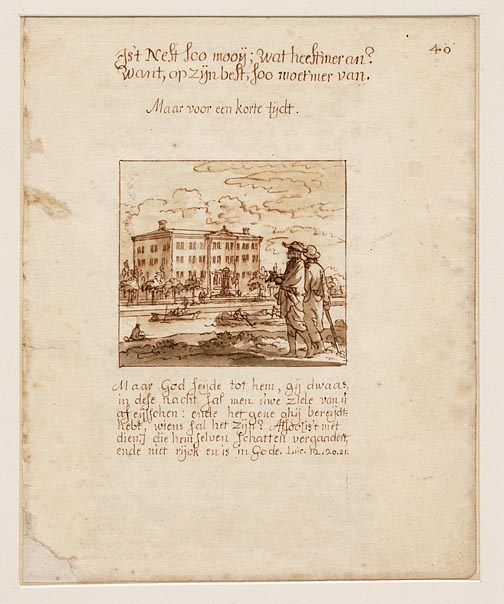 Is't Nest soo mooij; wat heeftmer an?
Want, op zijn best, soo moetmer van.
40
Maar voor een korte tijdt.
Maar God seijde tot hem, gij dwaas,
in dese nacht sal men uwe ziele van u
af eijsschen: ende het gene ghij bereijdt
hebt, wiens sal het zijn? Alsoo is't met
dien, die hem selven schatten vergaadert,
ende niet rijck en is in Gode. Luc. 12.20.21.